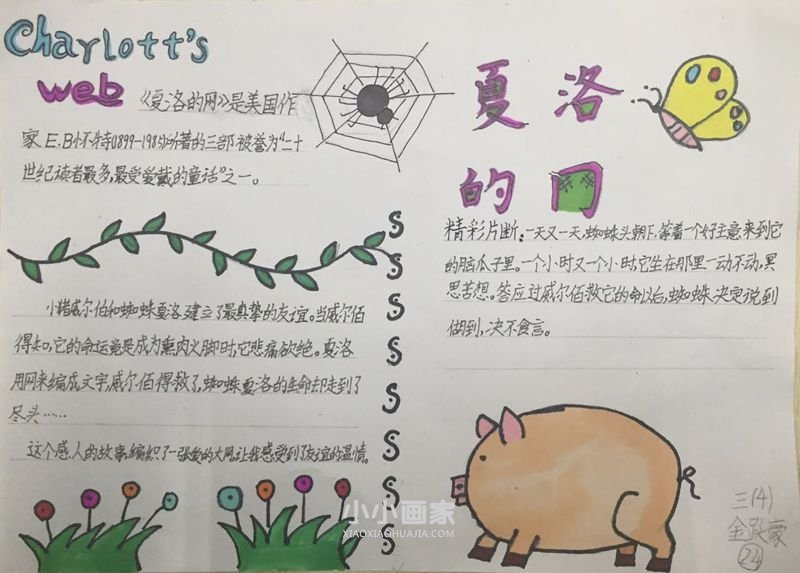 Charlott's
web
《夏洛的网》是美国作
家E.B怀特(1899-1985)所著的三部被誉为"二十
世纪读者最多,最受爱戴的童话"之一。
小猪威尔伯和蜘蛛夏洛建立了最真挚的友谊。当威尔佰
得知,它的命运竟是成为熏肉火脚时,它悲痛欲绝。夏洛
用网来编成文字,威尔佰得救了,蜘蛛夏洛的生命却走到了
尽头……
这个感人的故事,编织了一张爱的大网,让我感受到了友谊的温情。
S
S
S
S
S
S
S
S
夏洛
的网
精彩片断:一天又一天,蜘蛛头朝下,等着一个好主意来到它
的脑瓜子里。一个小时又一个小时,它坐在那里一动不动,冥
思苦想。答应过威尔佰救它的命以后,蜘蛛决定说到
做到,决不食言。
三(4)
金
24
小小画家
XIAOXIAOHUAJIA.COM